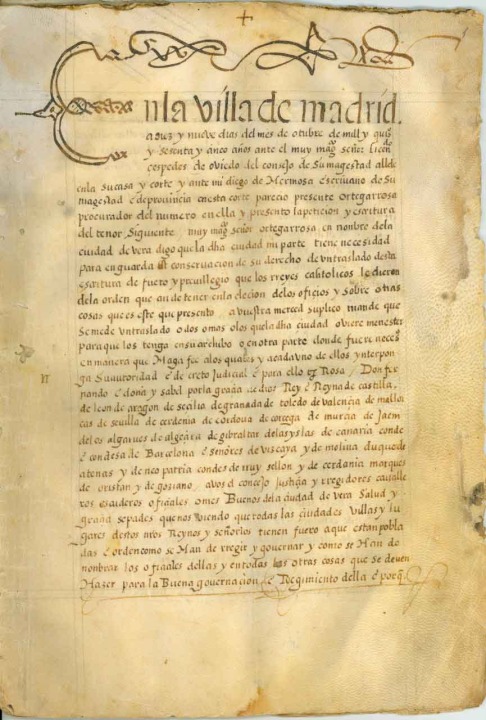 En la villa de madrid.
a diez y nueve dias del mes de otubre de mill y quis
y sesenta y cinco años ante el muy magco señor licendo
cespedes de oviedo del consejo de Su magestad allde
en la su casa y corte y ante mi diego de Hermosa escrivano de Su
magestad e de provincia en esta corte parecio presente ortega rrosa
procurador del numero en ella y presento la peticion y escritura
del tenor Siguiente / muy magco señor ortega rrosa en nombre de la
ciudad de vera digo que la dha ciudad mi parte tiene necesidad
para en guarda conservacion de su derecho de un traslado desta
escritura de fuero y previllegio que los rreyes catolicos le dieron
de la orden que an de tener en la elecion de los oficios y sobre otras
cosas que es este que presento a vuestra merced suplico mande que
Se me de un traslado o dos o mas o los que la dha ciudad oviere menester
para que los tenga en su archibo o en otra parte donde fuere necesso
en manera que Haga fee a los quales y a cada vno de ellos ynterpon
ga Su autoridad e decreto Judicial e para ello Rosa / Don fer
nando e doña ysabel por la graçia de dios Rey e Reyna de castilla,
de leon de aragon de seçilia de granada de toledo de valençia de mallor
cas de sevilla de cerdenia de cordova de corcega de murcia de Jaen
de los algarves de algezira de gibraltar de las yslas de canaria conde
e condesa de Barcelona e señores de vizcaya y de molina duques de
atenas y de neopatria condes de rruysellon y de cerdania marques
de oristan y de goziano, a vos el concejo Justiçia y rregidores cavalle
ros escuderos ofiçiales omes Buenos de la ciudad de vera Salud y
graçia sepades que nos viendo que todas las ciudades villas y lu
gares destos nros Reynos y señorios tienen fuero a que estan pobla
das e orden como se Han de rregir y governar y como se Han de
nombrar los ofiçiales dellas y en todas las otras cosas que se deven
Hazer para la Buena governacion e Regimiento della e porq.